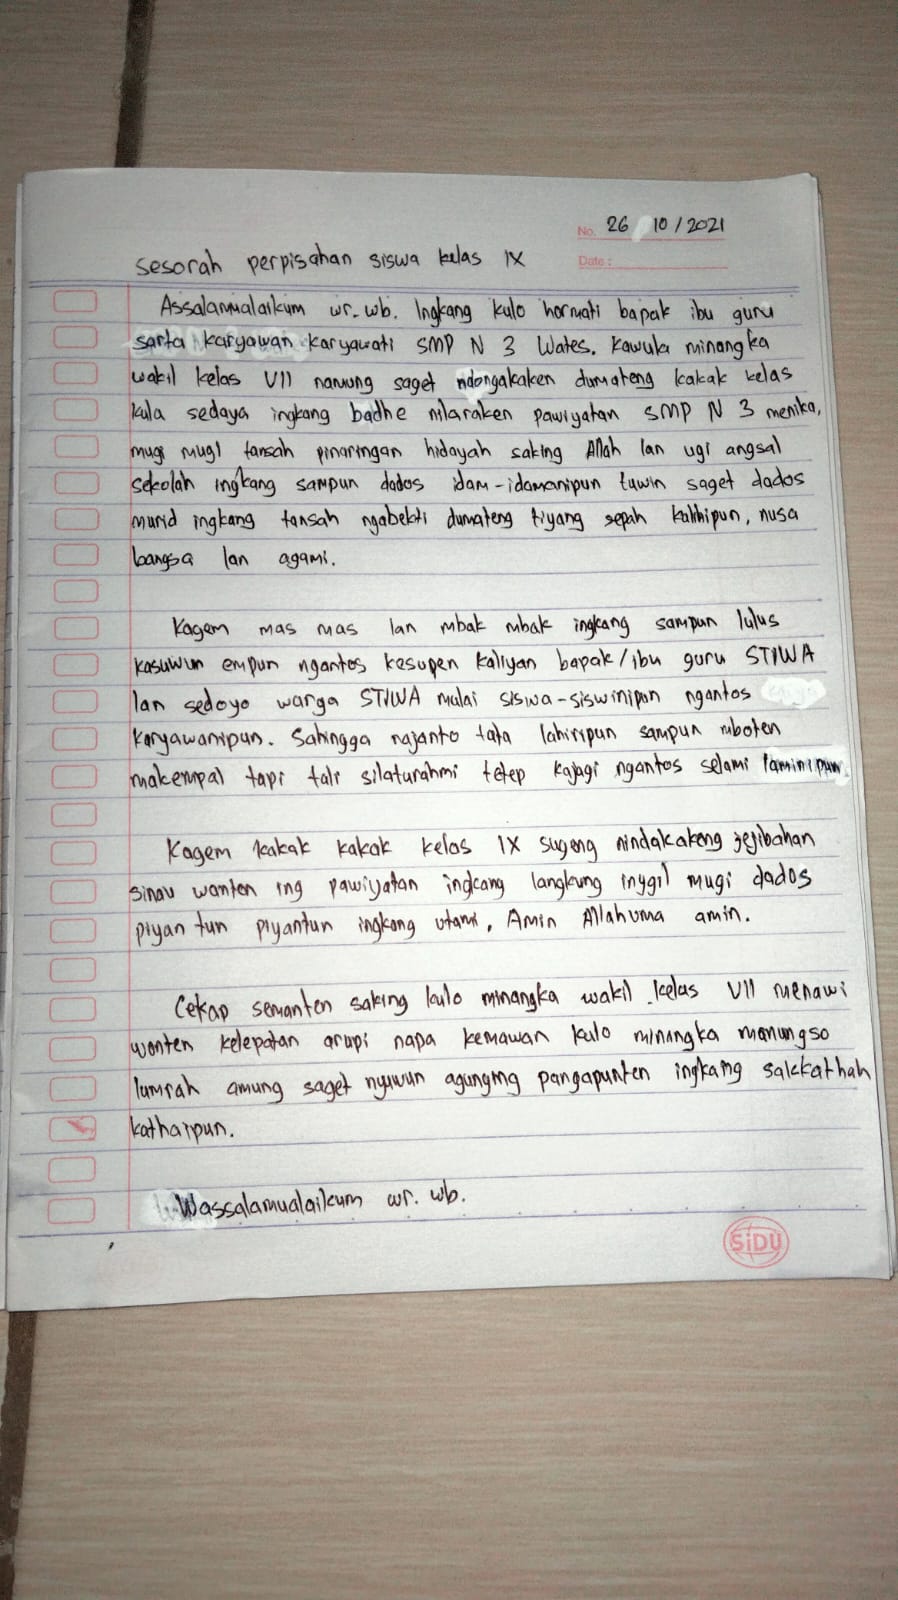 No. 26 10/2021
Date:
Sesorah perpisahan siswa kelas IX
Assalamualaikum wr. wb. Ingkang kulo hormati bapak ibu guru
sarta karyawan karyawati SMP N 3 Wates. Kawula minangka
wakil kelas VII namung saget ndongakaken dumateng kakak kelas
kula sedaya ingkang badhe nilaraken pawiyatan SMP N 3 menika,
mugi mugi tansah pinaringan hidayah saking Allah lan ugi angsal
sekolah ingkang sampun dados idam-idamanipun tuwin saget dados
murid ingkang tansah ngabekti dumateng tiyang sepah kalihipun, nusa
bangsa lan agami.
Kagem mas mas lan mbak mbak ingkang sampun lulus
kasuwun empun ngantos kesupen kaliyan bapak/ibu guru STIWA
lan sedoyo warga STIWA mulai siswa-siswinipun ngantos
karyawanipun. Sahingga najanto tata lahiripun sampun mboten
makempal tapi tali silaturahmi tetep kajagi ngantos selami laminipun.
Kagem kakak kakak kelas IX sugeng nindakakeng jejibahan
sinau wonten ing pawiyatan ingkang langkung inggil mugi dados
piyan tun piyantun ingkang utami, Amin Allahuma amin.
Cekap semanten saking kulo minangka wakil kelas VII menawi
wonten kelepatan arupi napa kemawan kulo minangka manungso
lumrah amung saget nyuwun agunging pangapunten ingkang sakkathah
kathaipun.
Wassalamualaikum wr. wb.
SiDU